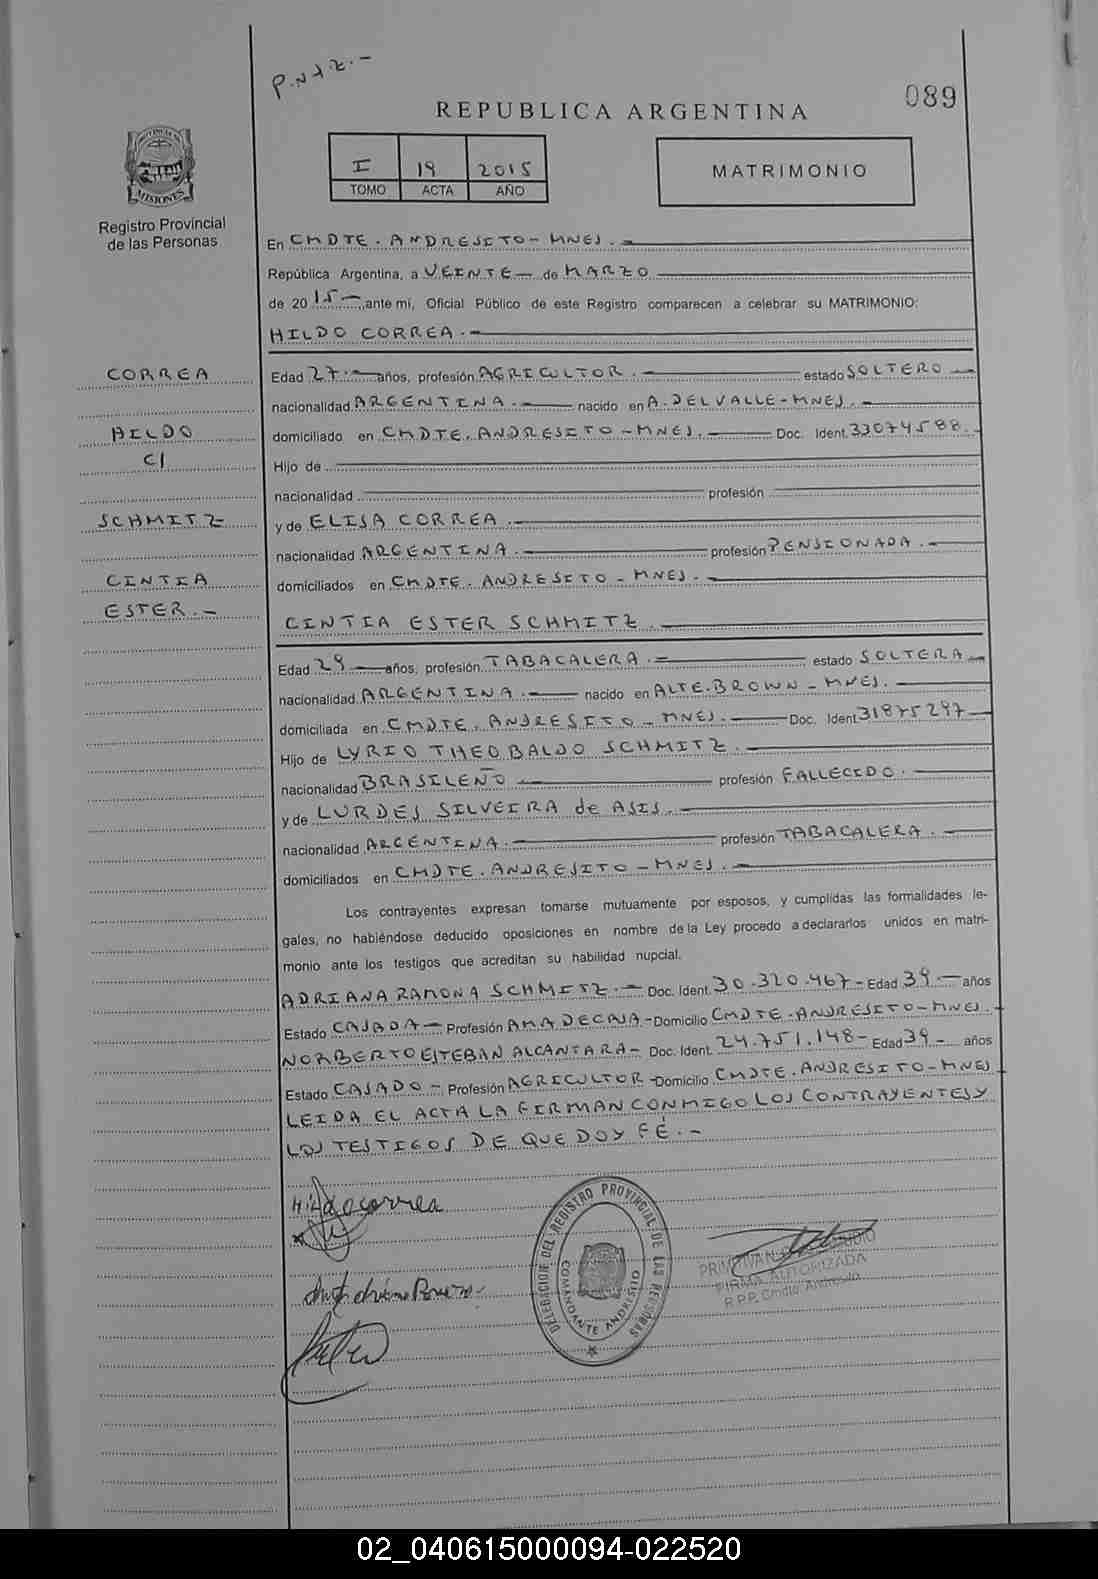 089
REPUBLICA ARGENTINA
I 19 2015
TOMO ACTA AÑO
MATRIMONIO
PROVINCIA DE
MISIONES
Registro Provincial
de las Personas
En CMDTE. ANDRESITO-MNES.
República Argentina, a VEINTE de MARZO
de 2015 ante mí, Oficial Público de este Registro comparecen a celebrar su MATRIMONIO:
HILDO CORREA.
CORREA
HILDO
C/
SCHMITZ
CINTIA
ESTER.-
Edad 27.- años, profesión AGRICULTOR. estado SOLTERO
nacionalidad ARGENTINA. nacido en A. DEL VALLE-MNES.
domiciliado en CMDTE. ANDRESITO-MNES. Doc. Ident. 33074588.-
Hijo de
nacionalidad profesión
y de ELISA CORREA
nacionalidad ARGENTINA. profesión PENSIONADA.
domiciliados en CMDTE. ANDRESITO-MNES.
CINTIA ESTER SCHMITZ
Edad 29 años, profesión TABACALERA. estado SOLTERA
nacionalidad ARGENTINA. nacido en ALTE. BROWN-MNES.
domiciliada en CMDTE. ANDRESITO-MNES. Doc. Ident. 31875297
Hijo de LYRIO THEOBALDO SCHMITZ.
nacionalidad BRASILEÑO profesión FALLECIDO.
y de LURDES SILVEIRA de ASIS.
nacionalidad ARGENTINA. profesión TABACALERA.
domiciliados en CMDTE. ANDRESITO-MNES.
Los contrayentes expresan tomarse mutuamente por esposos, y cumplidas las formalidades le-
gales, no habiéndose deducido oposiciones en nombre de la Ley procedo a declararlos unidos en matri-
monio ante los testigos que acreditan su habilidad nupcial.
ADRIANA RAMONA SCHMITZ.- Doc. Ident. 30.320.467- Edad 39.- años
Estado CASADA- Profesión AMA DE CASA- Domicilio CMDTE. ANDRESITO-MNES.
NORBERTO ESTEBAN ALCANTARA- Doc. Ident. 24.751.148- Edad 39- años
Estado CASADO- Profesión AGRICULTOR- Domicilio CMDTE. ANDRESITO-MNES
LEIDA EL ACTA LA FIRMAN CONMIGO LOS CONTRAYENTES Y
LOS TESTIGOS DE QUE DOY FÉ.-
Hildo correa
DELEGACION DEL REGISTRO PROVINCIAL DE LAS PERSONAS
COMANDANTE ANDRESITO
FIRMA AUTORIZADA
R.P.P. Cmdte. Andresito
02_040615000094-022520